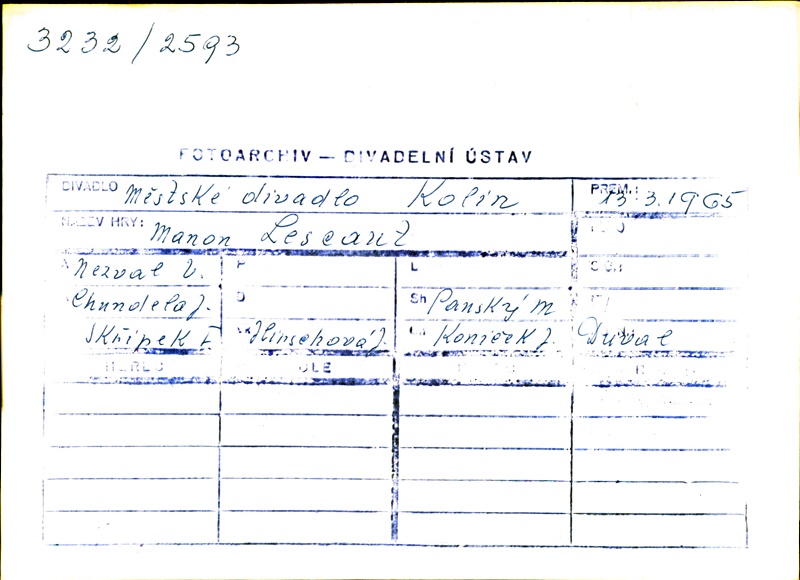 3232/2593
FOTOARCHIV — DIVADELNÍ ÚSTAV
DIVADLO Městské divadlo Kolín PREM.: 13 3.1965
NÁZEV HRY: Manon Lescaut
A Nezval V. P L
Chundela J. D Sh Panský M
Skřípek F. Hlinschová J. Koníček J. Duval